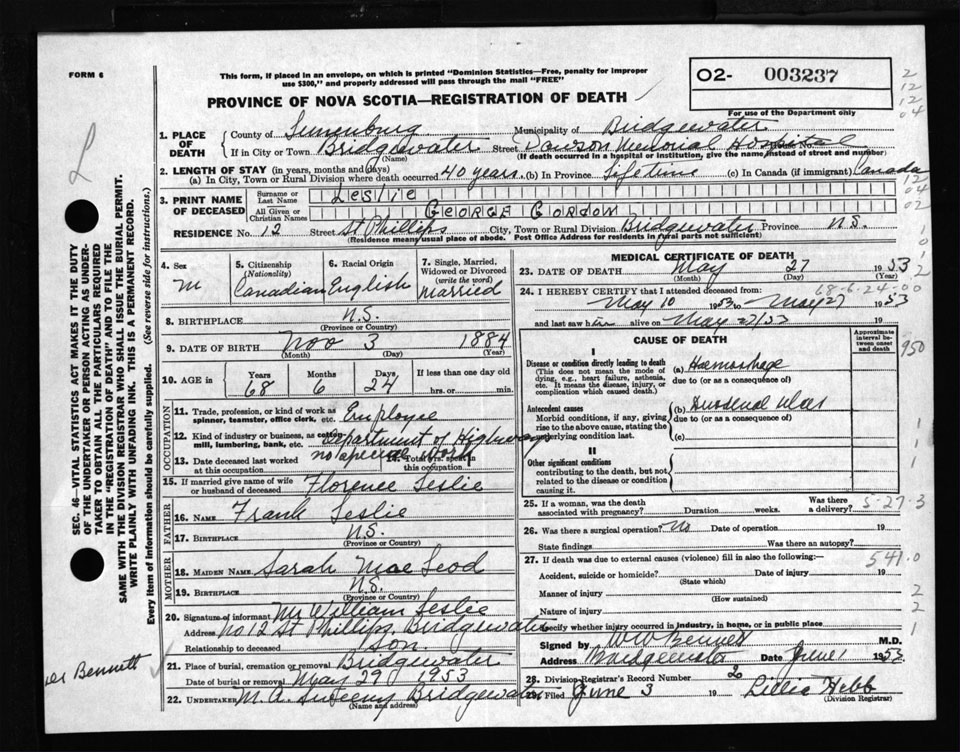 FORM 6
This form, if placed in an envelope, on which is printed "Dominion Statistics—Free, penalty for improper
use $300," and properly addressed will pass through the mail "FREE"
PROVINCE OF NOVA SCOTIA—REGISTRATION OF DEATH
02- 003237
For use of the Department only
2
12
12
04
L
1. PLACE OF DEATH
County of Lunenburg Municipality of Bridgewater
If in City or Town Bridgewater Street Dawson Memorial Hospital No.
(Name) (If death occurred in a hospital or institution, give the name instead of street and number)
2. LENGTH OF STAY (in years, months and days)
(a) In City, Town or Rural Division where death occurred 40 years. (b) In Province Lifetime (c) In Canada (if immigrant) Canada
3. PRINT NAME OF DECEASED
Surname or Last Name Leslie
All Given or Christian Names George Gordon
RESIDENCE No. 12 Street St Phillips City, Town or Rural Division Bridgewater Province N.S.
(Residence means usual place of abode. Post Office Address for residents in rural parts not sufficient)
12
04
02
4. Sex M
5. Citizenship (Nationality) Canadian
6. Racial Origin English
7. Single, Married, Widowed or Divorced (write the word) Married
8. BIRTHPLACE N.S.
(Province or Country)
9. DATE OF BIRTH Nov 3 1884
(Month) (Day) (Year)
10. AGE in Years Months Days If less than one day
68 6 24 hrs. or min.
OCCUPATION
11. Trade, profession, or kind of work as spinner, teamster, office clerk, etc. Employee
12. Kind of industry or business, as cotton-mill, lumbering, bank, etc. Department of Highways
13. Date deceased last worked at this occupation no special work 14. Total yrs. spent in this occupation
15. If married give name of wife or husband of deceased Florence Leslie
FATHER
16. Name Frank Leslie
17. BIRTHPLACE N.S.
(Province or Country)
MOTHER
18. MAIDEN NAME Sarah MacLeod
19. BIRTHPLACE N.S.
(Province or Country)
20. Signature of informant Mr William Leslie
Address No 12 St Phillips, Bridgewater
Relationship to deceased son.
21. Place of burial, cremation or removal Bridgewater
Date of burial or removal May 29 1953
22. UNDERTAKER M. A. Sweeny Bridgewater
(Name and address)
MEDICAL CERTIFICATE OF DEATH
23. DATE OF DEATH May 27 1953
(Month) (Day)
24. I HEREBY CERTIFY that I attended deceased from: 68-6-24-00
May 10 1953 to May 27 1953
and last saw him alive on May 27/53
CAUSE OF DEATH
Approximate interval between onset and death
950
I
Disease or condition directly leading to death
(This does not mean the mode of dying, e.g., heart failure, asthenia, etc. It means the disease, injury, or complication which caused death.)
(a) Haemorrhage
due to (or as a consequence of)
Antecedent causes
Morbid conditions, if any, giving rise to the above cause, stating the underlying condition last.
(b) Duodenal ulcer
due to (or as a consequence of)
(c)
II
Other significant conditions
contributing to the death, but not related to the disease or condition causing it.
25. If a woman, was the death associated with pregnancy? Duration weeks. Was there a delivery? 5-27-3
26. Was there a surgical operation? No Date of operation 19
State findings Was there an autopsy?
27. If death was due to external causes (violence) fill in also the following: 541.0
Accident, suicide or homicide? Date of injury 19
(State which)
Manner of injury
(How sustained)
Nature of injury
Specify whether injury occurred in industry, in home, or in public place
Signed by W W Bennett M.D.
Address Bridgewater Date June 1 1953
28. Division Registrar's Record Number
29. Filed June 3 19 Lillia Hebb
(Division Registrar)
SEC. 46—VITAL STATISTICS ACT MAKES IT THE DUTY
OF THE UNDERTAKER OR PERSON ACTING AS UNDER-
TAKER TO OBTAIN ALL THE PARTICULARS REQUIRED
IN THE "REGISTRATION OF DEATH" AND TO FILE THE
SAME WITH THE DIVISION REGISTRAR WHO SHALL ISSUE THE BURIAL PERMIT.
WRITE PLAINLY WITH UNFADING INK. THIS IS A PERMANENT RECORD.
Every item of information should be carefully supplied. (See reverse side for instructions.)
Bennett